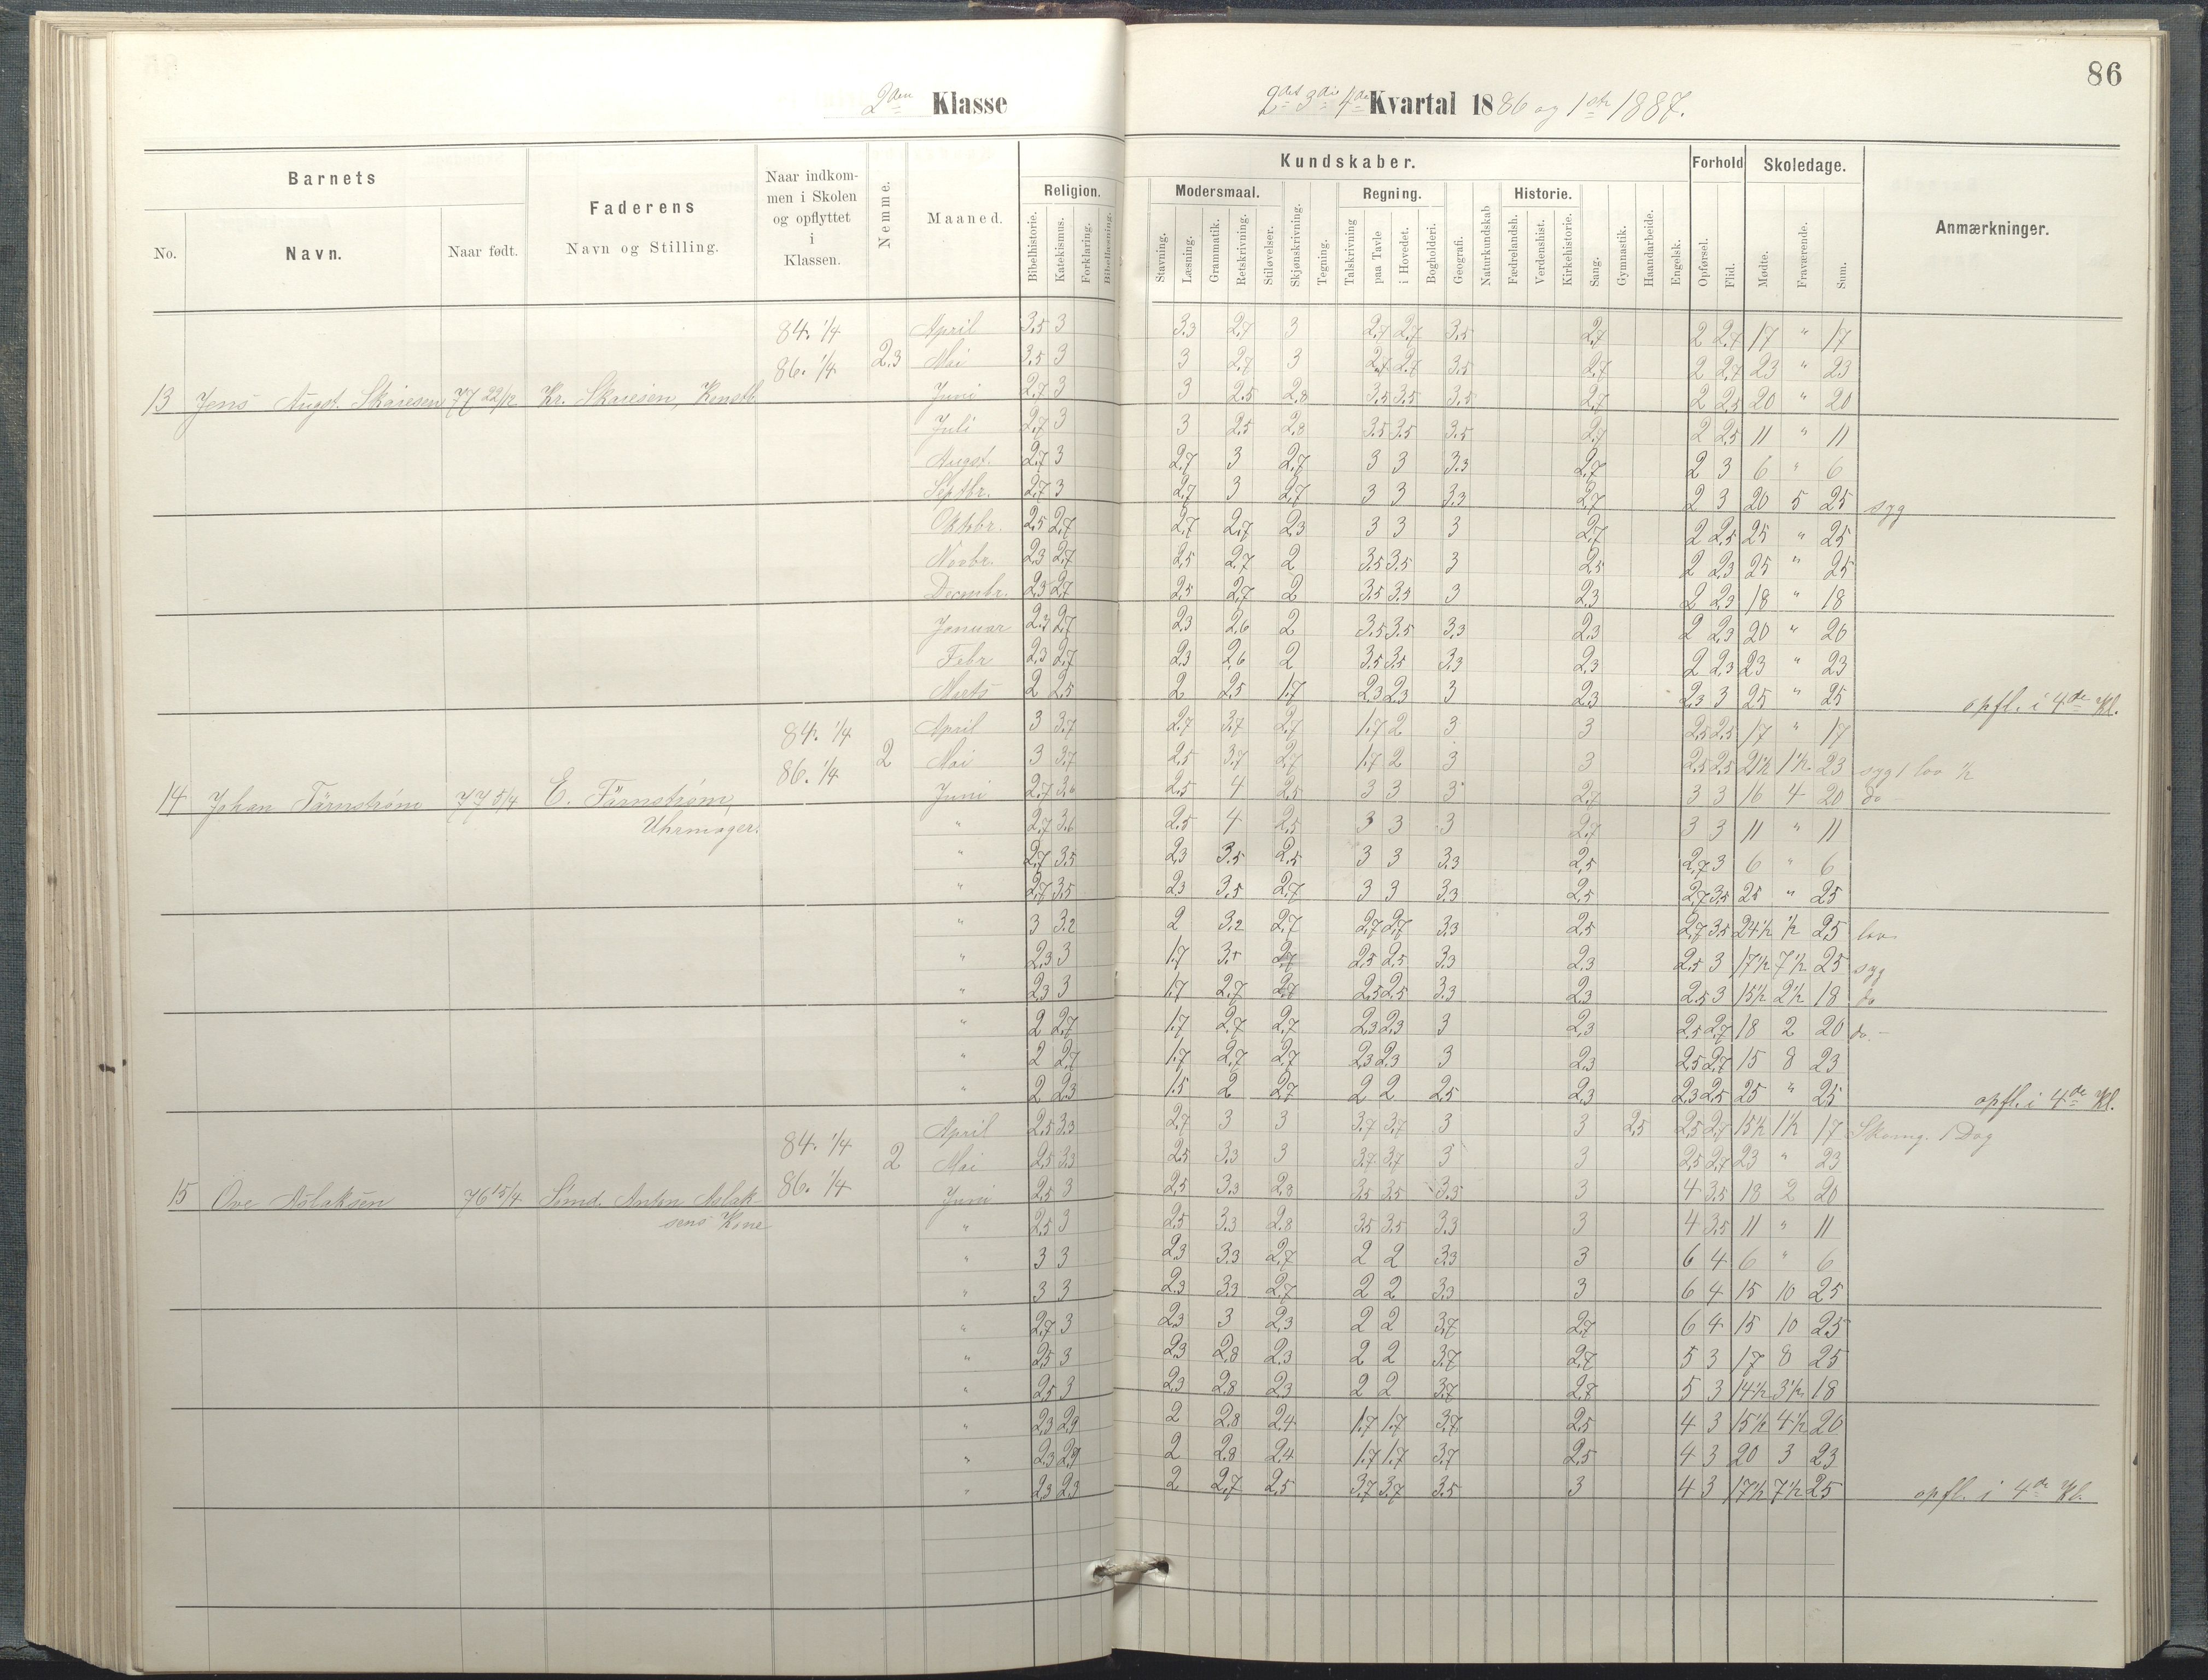 86
2den Klasse
2det 3die 4de Kvartal 1886 og 1ste 1887.
Barnets
Faderens
Navn og Stilling.
Naar indkommen i Skolen og opflyttet i Klassen.
Nemme.
Maaned.
Kundskaber.
Forhold
Skoledage.
Anmærkninger.
No.
Navn.
Naar født.
Religion.
Modersmaal.
Regning.
Historie.
Bibelhistorie.
Katekismus.
Forklaring.
Bibellæsning.
Stavning.
Læsning.
Grammatik.
Retskrivning.
Stiløvelser.
Skjønskrivning.
Tegning.
Talskrivning
paa Tavle
i Hovedet.
Bogholderi.
Geografi.
Naturkundskab
Fædrelandsh.
Verdenshist.
Kirkehistorie.
Sang.
Gymnastik.
Haandarbeide.
Engelsk.
Opførsel.
Flid.
Mødte.
Fraværende.
Sum.
84. 1/4
86. 1/4
2.3
13 Jens Augst. 77 22/12
April 3.5 3 3.3 2.7 3 2.7 2.7 3.5 2.7 2 2.7 17 " 17
Mai 3.5 3 3 2.7 3 2.7 2.7 3.5 2.7 2 2.7 23 " 23
Juni 2.7 3 3 2.5 2.8 3.5 3.5 3.5 2.7 2 2.5 20 " 20
Juli 2.7 3 3 2.5 2.8 3.5 3.5 3.5 2.7 2 2.5 11 " 11
Augst. 2.7 3 2.7 3 2.7 3 3 3.3 2.7 2 3 6 " 6
Septbr. 2.7 3 2.7 3 2.7 3 3 3.3 2.7 2 3 20 5 25 syg
Oktobr. 2.5 2.7 2.7 2.7 2.3 3 3 3 2.7 2 2.5 25 " 25
Novbr. 2.3 2.7 2.5 2.7 2 3.5 3.5 3 2.5 2 2.3 25 " 25
Decembr. 2.3 2.7 2.5 2.7 2 3.5 3.5 3 2.3 2 2.3 18 " 18
Januar 2.3 2.7 2.3 2.6 2 3.5 3.5 3.3 2.3 2 2.3 20 " 20
Febr 2.3 2.7 2.3 2.6 2 3.5 3.5 3.3 2.3 2 2.3 23 " 23
Marts 2 2.5 2 2.5 1.7 2.3 2.3 3 2.3 2.3 3 25 " 25 opfl. i 4de Kl.
84. 1/4
86. 1/4
2
14 Johan Tärnstrøm 77 5/4 E. Tärnstrøm,
Uhrmager.
April 3 3.7 2.7 3.7 2.7 1.7 2 3 3 2.5 2.5 17 " 17
Mai 3 3.7 2.5 3.7 2.7 1.7 2 3 3 2.5 2.5 21½ 1½ 23 syg 1 lov ½
Juni 2.7 3.6 2.5 4 2.5 3 3 3 2.7 3 3 16 4 20 do
" 2.7 3.6 2.5 4 2.5 3 3 3 2.7 3 3 11 " 11
" 2.7 3.5 2.3 3.5 2.5 3 3 3.3 2.5 2.7 3 6 " 6
" 2.7 3.5 2.3 3.5 2.7 3 3 3.3 2.5 2.7 3.5 25 " 25
" 3 3.2 2 3.2 2.7 2.7 2.7 3.3 2.5 2.7 3.5 24½ ½ 25 lov
" 2.3 3 1.7 3. 2.7 2.5 2.5 3.3 2.3 2.5 3 17½ 7½ 25 syg
" 2.3 3 1.7 2.7 2.7 2.5 2.5 3.3 2.3 2.5 3 15½ 2½ 18 do
" 2 2.7 1.7 2.7 2.7 2.3 2.3 3 2.3 2.5 2.7 18 2 20 do.
" 2 2.7 1.7 2.7 2.7 2.3 2.3 3 2.3 2.5 2.7 15 8 23
" 2 2.3 1.5 2 2.7 2 2 2.5 2.3 2.3 2.5 25 " 25 opfl. i 4de Kl.
84. 1/4
86. 1/4
2
15 Ove Aslaksen 76 15/4 Smd. Anton Aslak-
sens Kone
April 2.5 3.3 2.7 3 3 3.7 3.7 3 3 2.5 2.5 2.7 15½ 1½ 17 1 Dag
Mai 2.5 3.3 2.5 3.3 3 3.7 3.7 3 3 2.5 2.7 23 " 23
Juni 2.5 3 2.5 3.3 2.8 3.5 3.5 3.3 3 4 3.5 18 2 20
" 2.5 3 2.5 3.3 2.8 3.5 3.5 3.3 3 4 3.5 11 " 11
" 3 3 2.3 3.3 2.7 2 2 3.3 3 6 4 6 " 6
" 3 3 2.3 3.3 2.7 2 2 3.3 3 6 4 15 10 25
" 2.7 3 2.3 3 2.3 2 2 3.7 2.7 6 4 15 10 25
" 2.5 3 2.3 2.8 2.3 2 2 3.7 2.7 5 3 17 8 25
" 2.5 3 2.3 2.8 2.3 2 2 3.7 2.7 5 3 14½ 3½ 18
" 2.3 2.9 2 2.8 2.4 1.7 1.7 3.7 2.5 4 3 15½ 4½ 20
" 2.3 2.9 2 2.8 2.4 1.7 1.7 3.7 2.5 4 3 20 3 23
" 2.3 2.3 2 2.7 2.5 3.7 3.7 3.5 3 4 3 17½ 7½ 25 opfl. i 4de Kl.